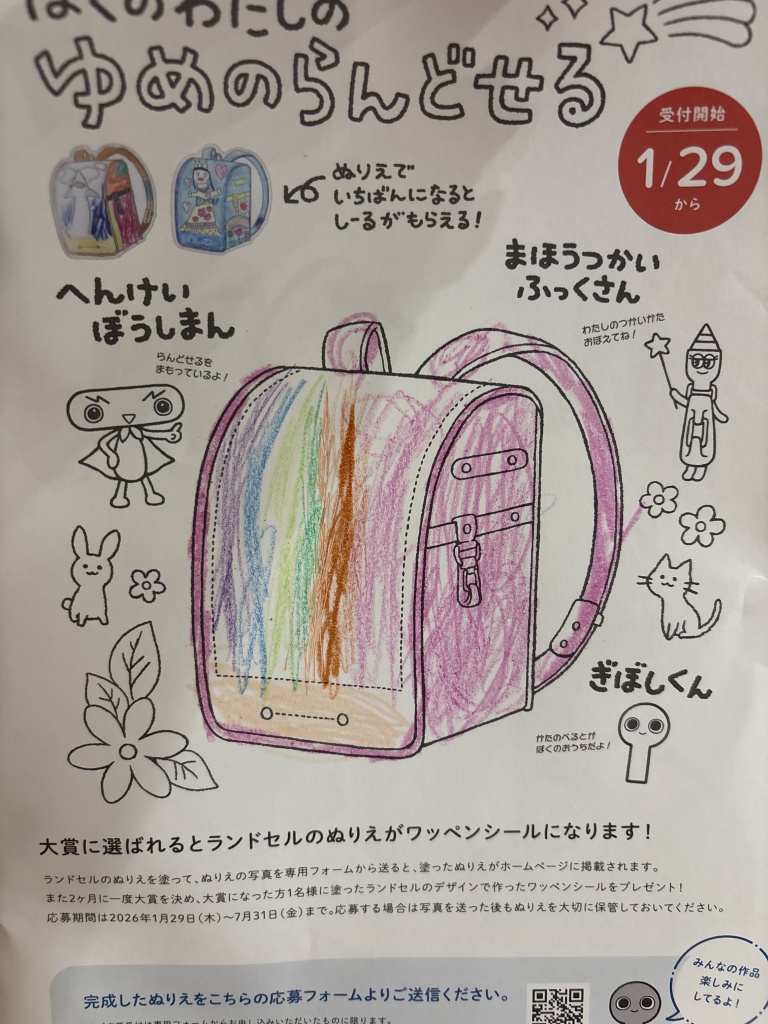 ぼくのわたしの
ゆめのらんどせる
受付開始
1/29
から
ぬりえで
いちばんになると
しーるがもらえる!
まほうつかい
ふっくさん
わたしのつかいかた
おぼえてね!
へんけい
ぼうしまん
らんどせるを
まもっているよ!
ぎぼしくん
かたのべるとが
ぼくのおうちだよ!
大賞に選ばれるとランドセルのぬりえがワッペンシールになります!
ランドセルのぬりえを塗って、ぬりえの写真を専用フォームから送ると、塗ったぬりえがホームページに掲載されます。
また2ヶ月に一度大賞を決め、大賞になった方1名様に塗ったランドセルのデザインで作ったワッペンシールをプレゼント!
応募期間は2026年1月29日(木)〜7月31日(金)まで。応募する場合は写真を送った後もぬりえを大切に保管しておいてください。
完成したぬりえをこちらの応募フォームよりご送信ください。
みんなの作品
楽しみに
してるよ!